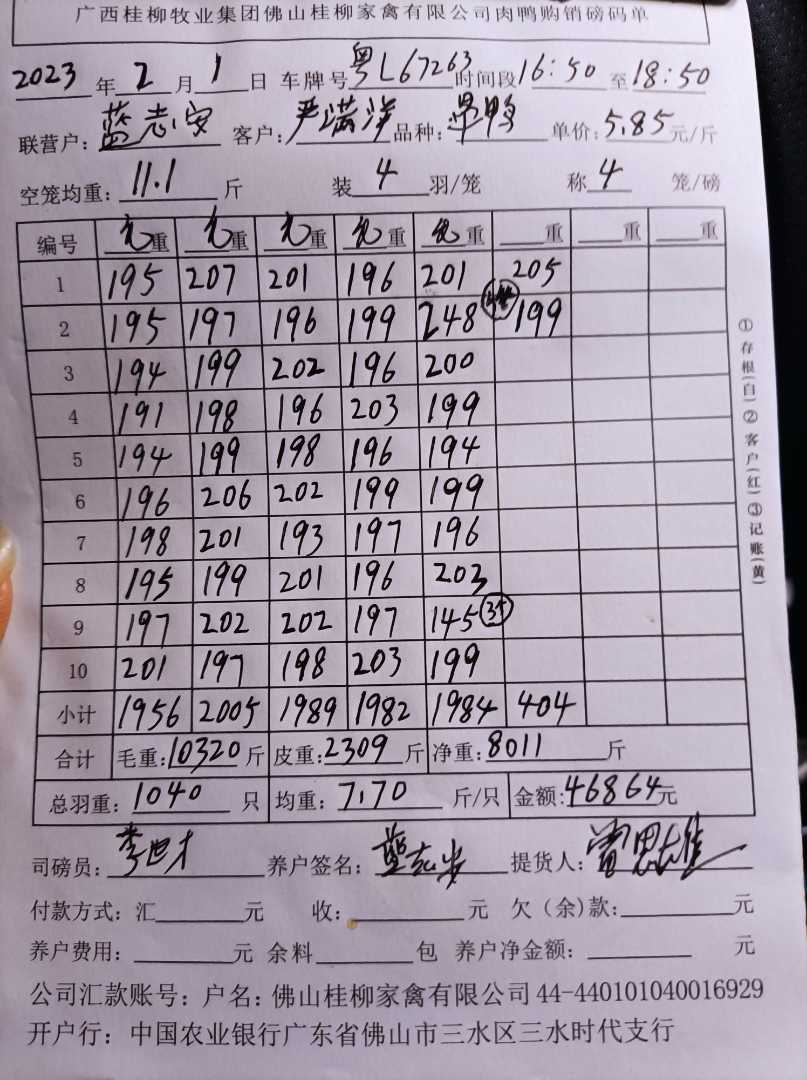 广西桂柳牧业集团佛山桂柳家禽有限公司肉鸭购销磅码单
2023年2月1日 车牌号粤L67263时间段16:50至18:50
联营户:蓝志安 客户:严满洋 品种:旱鸭 单价:5.85元/斤
空笼均重:11.1斤 装4羽/笼 称4笼/磅
编号 毛重 毛重 毛重 毛重 毛重 重 重 重
1 195 207 201 196 201 205
2 195 197 196 199 248 199
3 194 199 202 196 200
4 191 198 196 203 199
5 194 199 198 196 194
6 196 206 202 199 199
7 198 201 193 197 196
8 195 199 201 196 203
9 197 202 202 197 145 3个
10 201 197 198 203 199
小计 1956 2005 1989 1982 1984 404
合计 毛重:10320斤 皮重:2309斤 净重:8011斤
总羽重:1040只 均重:7.70斤/只 金额:46864元
司磅员:李世才 养户签名:蓝志安 提货人:雷思雄
付款方式:汇元 收:元 欠(余)款:元
养户费用:元 余料包 养户净金额:元
公司汇款账号:户名:佛山桂柳家禽有限公司44-440101040016929
开户行:中国农业银行广东省佛山市三水区三水时代支行
①存根(白)②客户(红)③记账(黄)